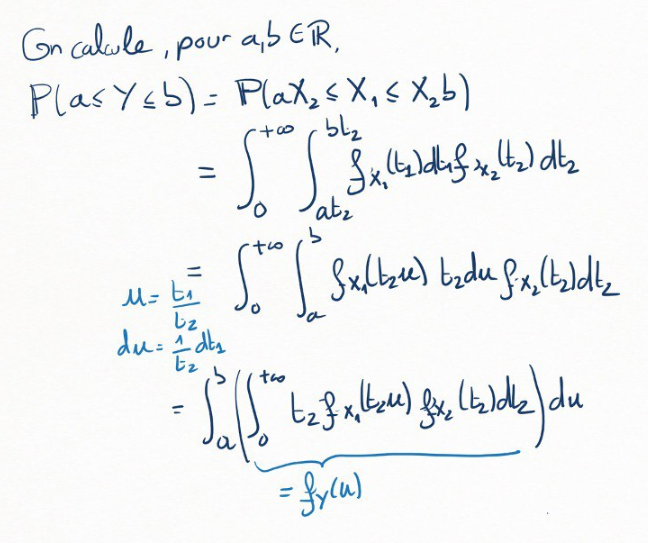 On calcule, pour a,b ∈ ℝ,
P(a ≤ Y ≤ b) = P(aX₂ ≤ X₁ ≤ X₂b)
= ∫₀^{+∞} ∫_{at₂}^{bt₂} f_{X₁}(t₁)dt₁ f_{X₂}(t₂) dt₂
= ∫₀^{+∞} ∫_a^b f_{X₁}(t₂u) t₂du f_{X₂}(t₂)dt₂
u = t₁/t₂
du = 1/t₂ dt₁
= ∫_a^b (∫₀^{+∞} t₂ f_{X₁}(t₂u) f_{X₂}(t₂)dt₂) du
= f_Y(u)